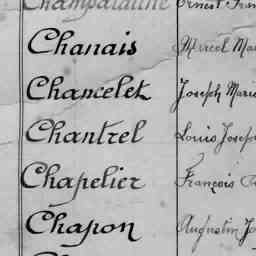 Champalaune Ernest Fran
Chanais Marcel Mar
Chancelet Joseph Marie
Chantrel Louis Joseph
Chapelier François
Chapon Augustin Jo